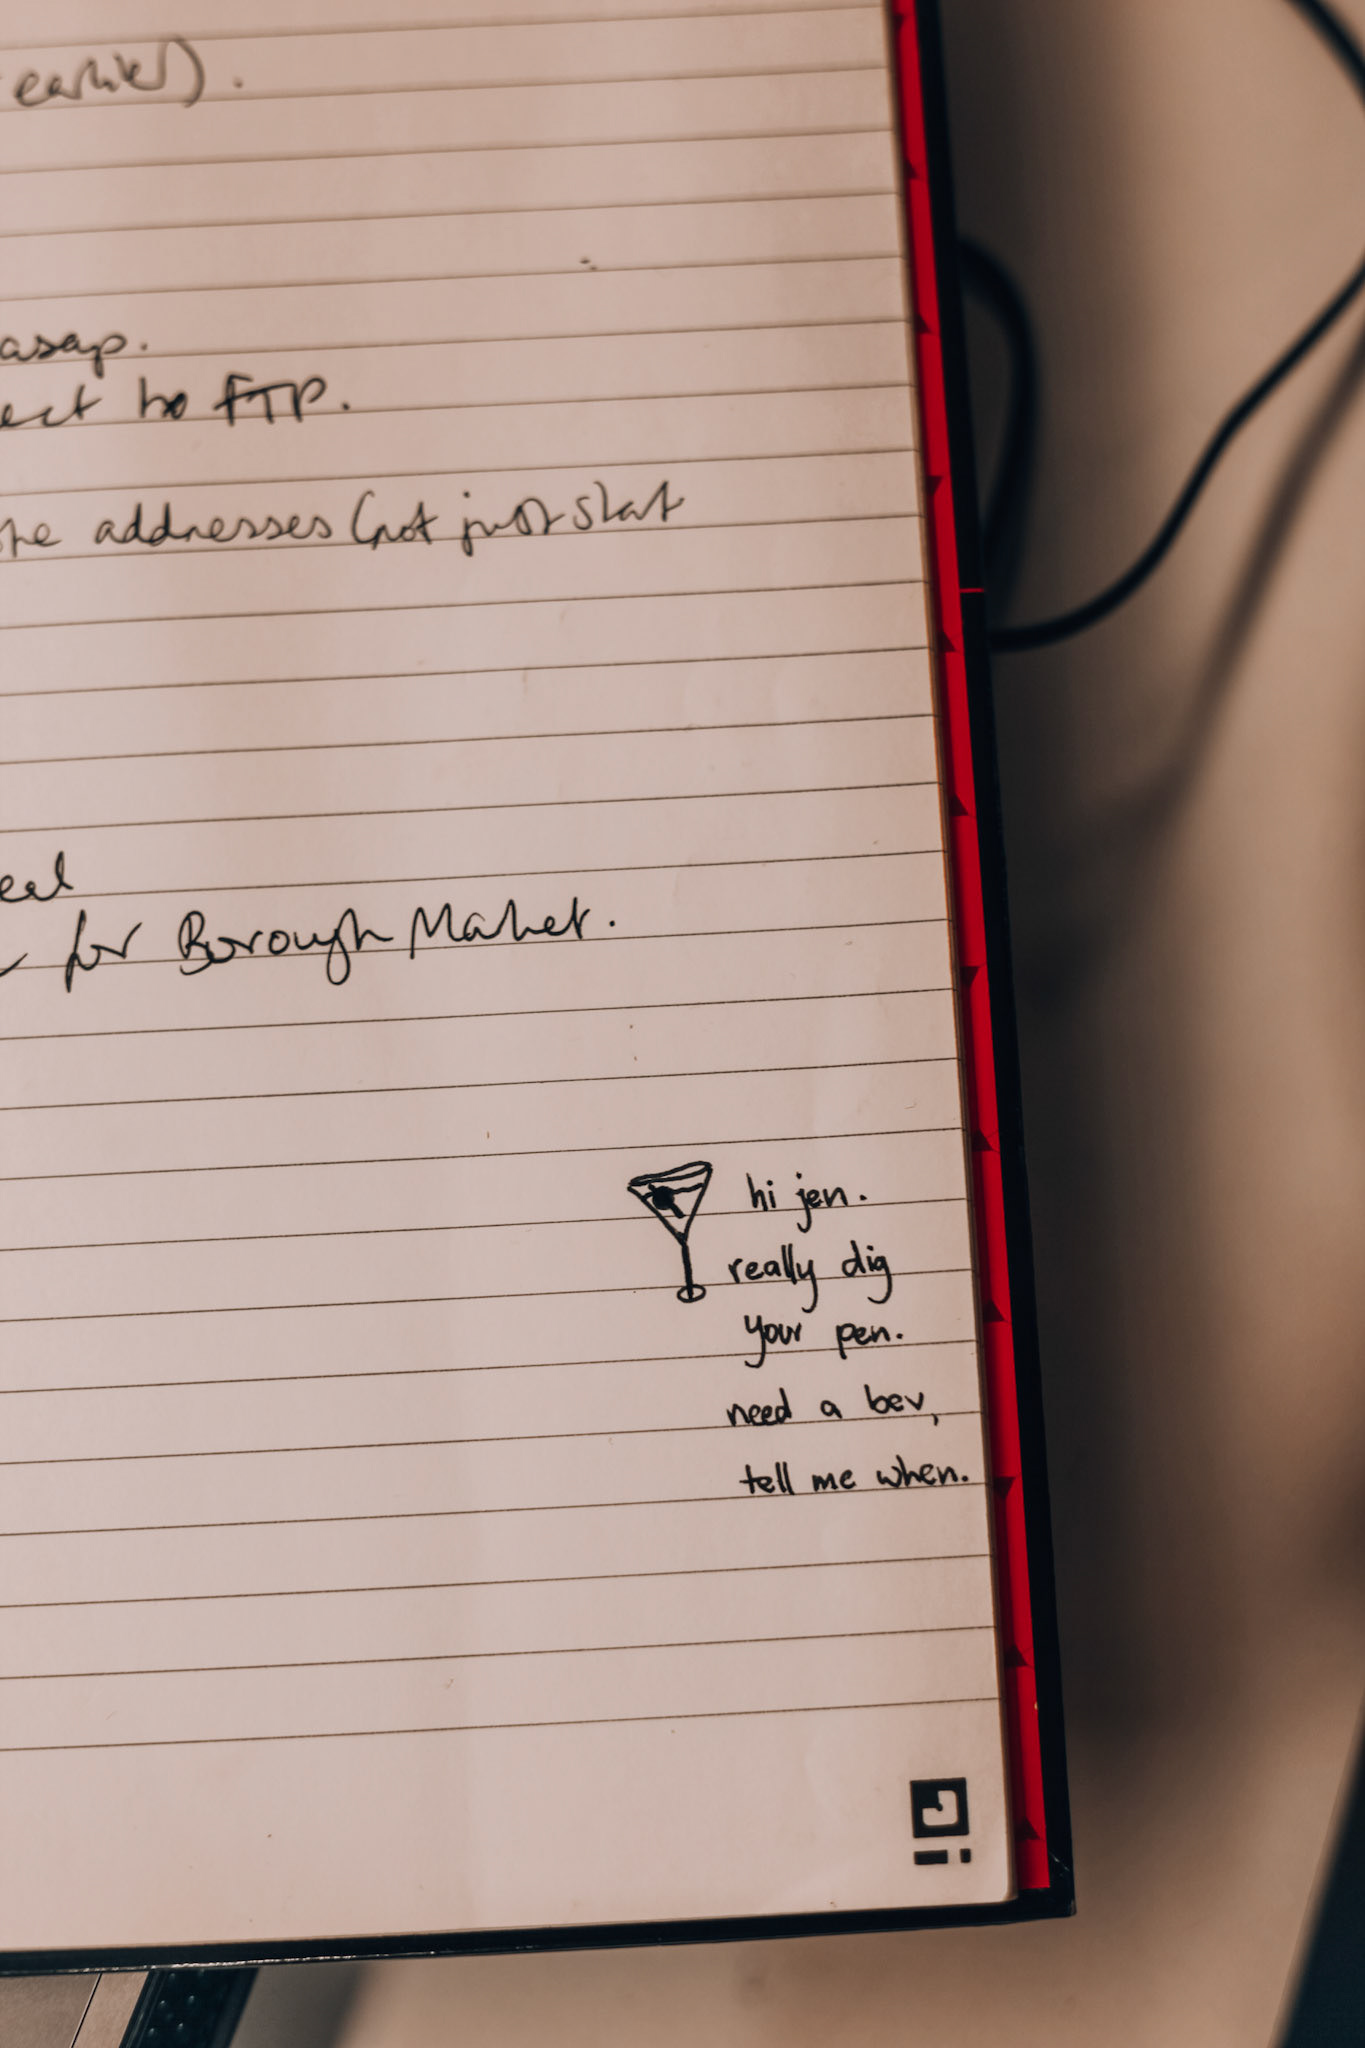 earlier).
asap.
ect to FTP.
addresses (not just stat
for Borough Market.
hi jen.
really dig
your pen.
need a bev,
tell me when.